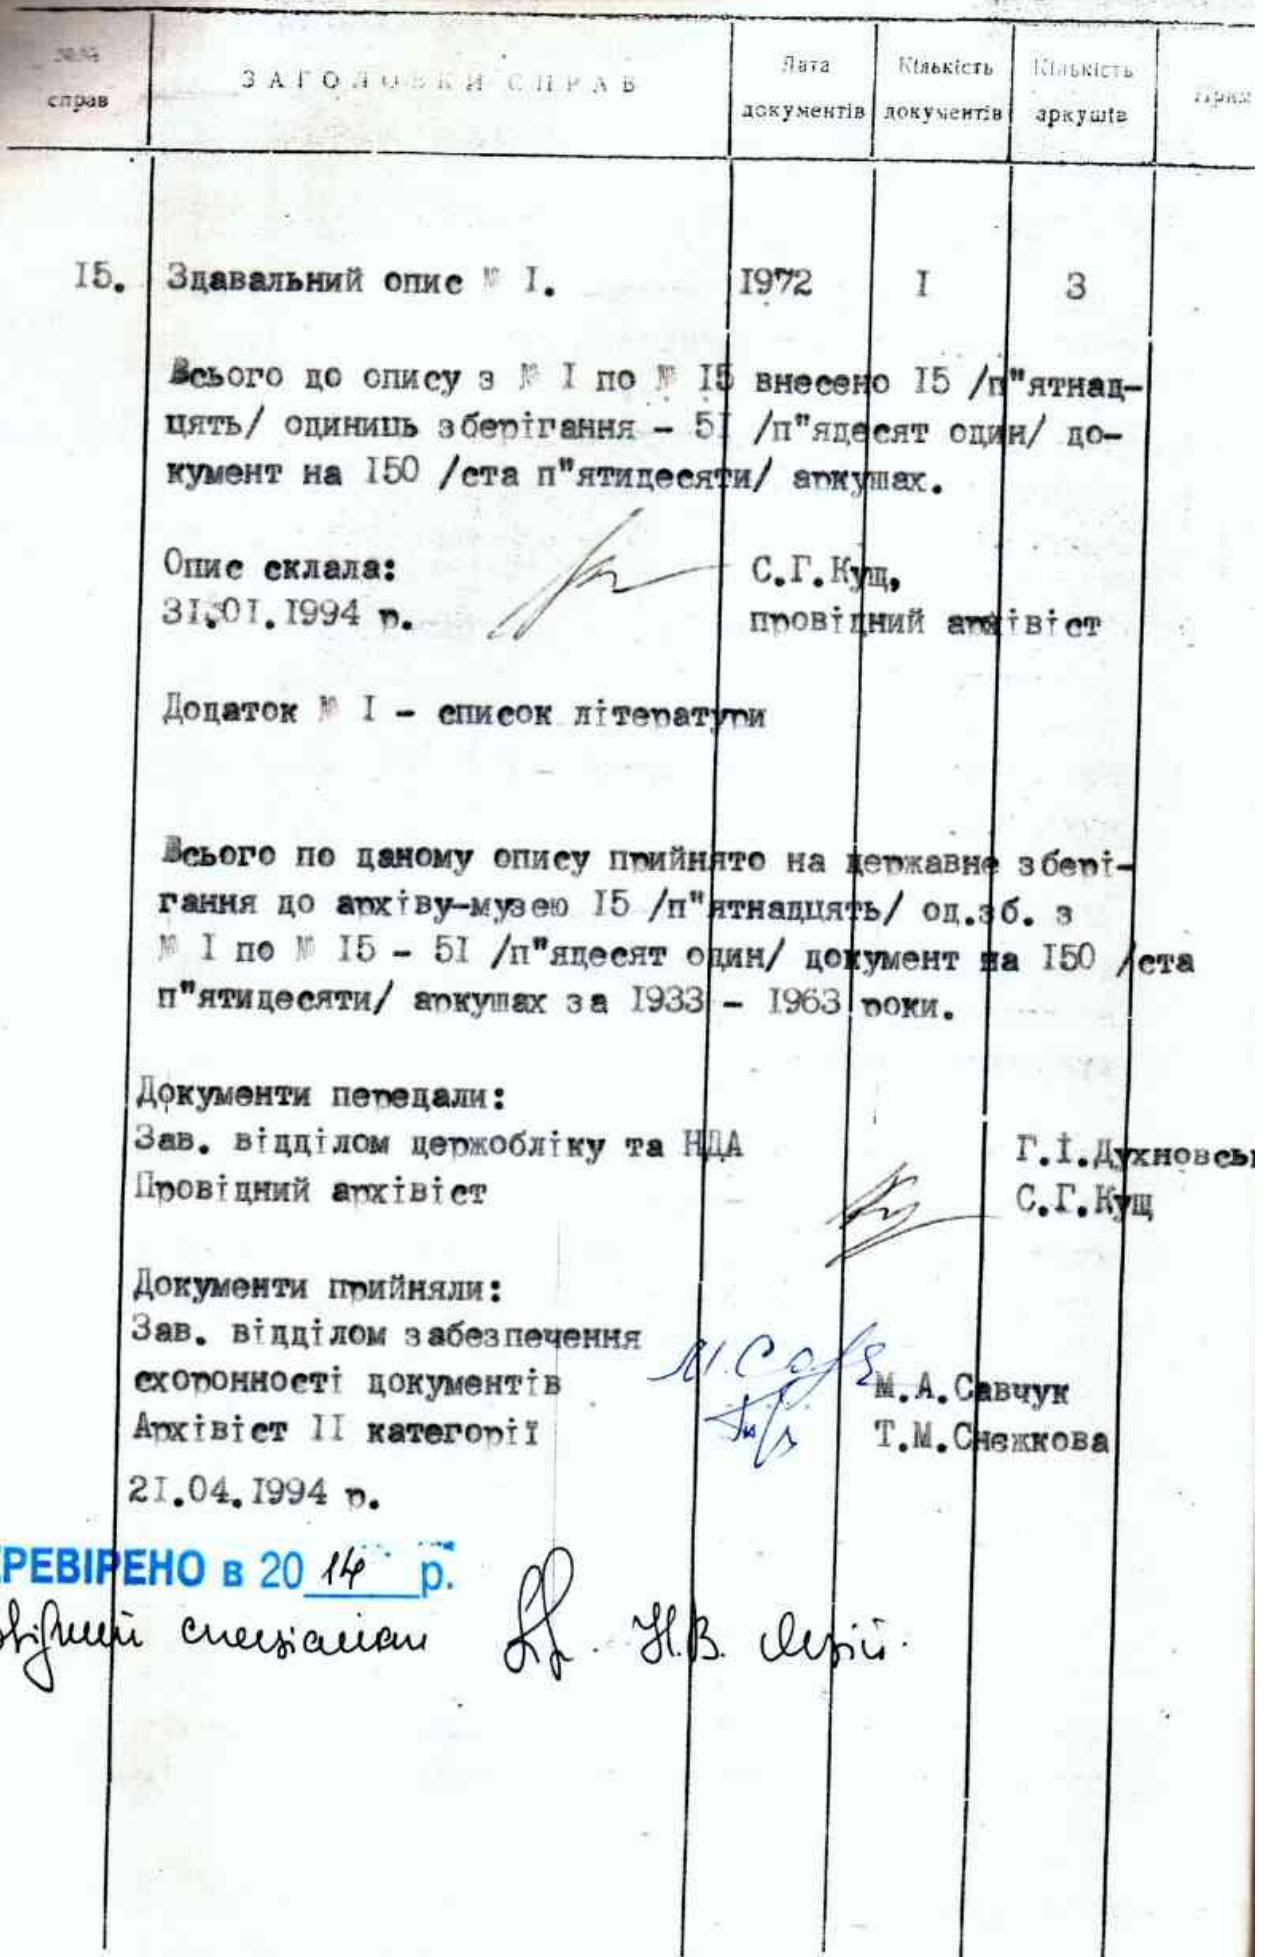 №№ справ ЗАГОЛОВКИ СПРАВ Дата документів Кількість документів Кількість аркушів Прим
I5. Здавальний опис № I. I972 I 3
Всього до опису з № I по № I5 внесено I5 /п"ятнад-
цять/ одиниць зберігання - 5I /п"ядесят один/ до-
кумент на I50 /ста п"ятидесяти/ аркушах.
Опис склала: С.Г.Кущ,
3I.0I.I994 р. провідний архівіст
Додаток № I - список літератури
Всього по даному опису прийнято на державне збері-
гання до архіву-музею I5 /п"ятнадцять/ од.зб. з
№ I по № I5 - 5I /п"ядесят один/ документ на I50 /ста
п"ятидесяти/ аркушах за I933 - I963 роки.
Документи передали:
Зав. відділом держобліку та НДА Г.І.Духновсь
Провідний архівіст С.Г.Кущ
Документи прийняли:
Зав. відділом забезпечення
схоронності документів М.А.Савчук
Архівіст II категорії Т.М.Снежкова
2I.04.I994 р.
ЕРЕВІРЕНО в 20 14 р.
відний спеціаліст Н.В.